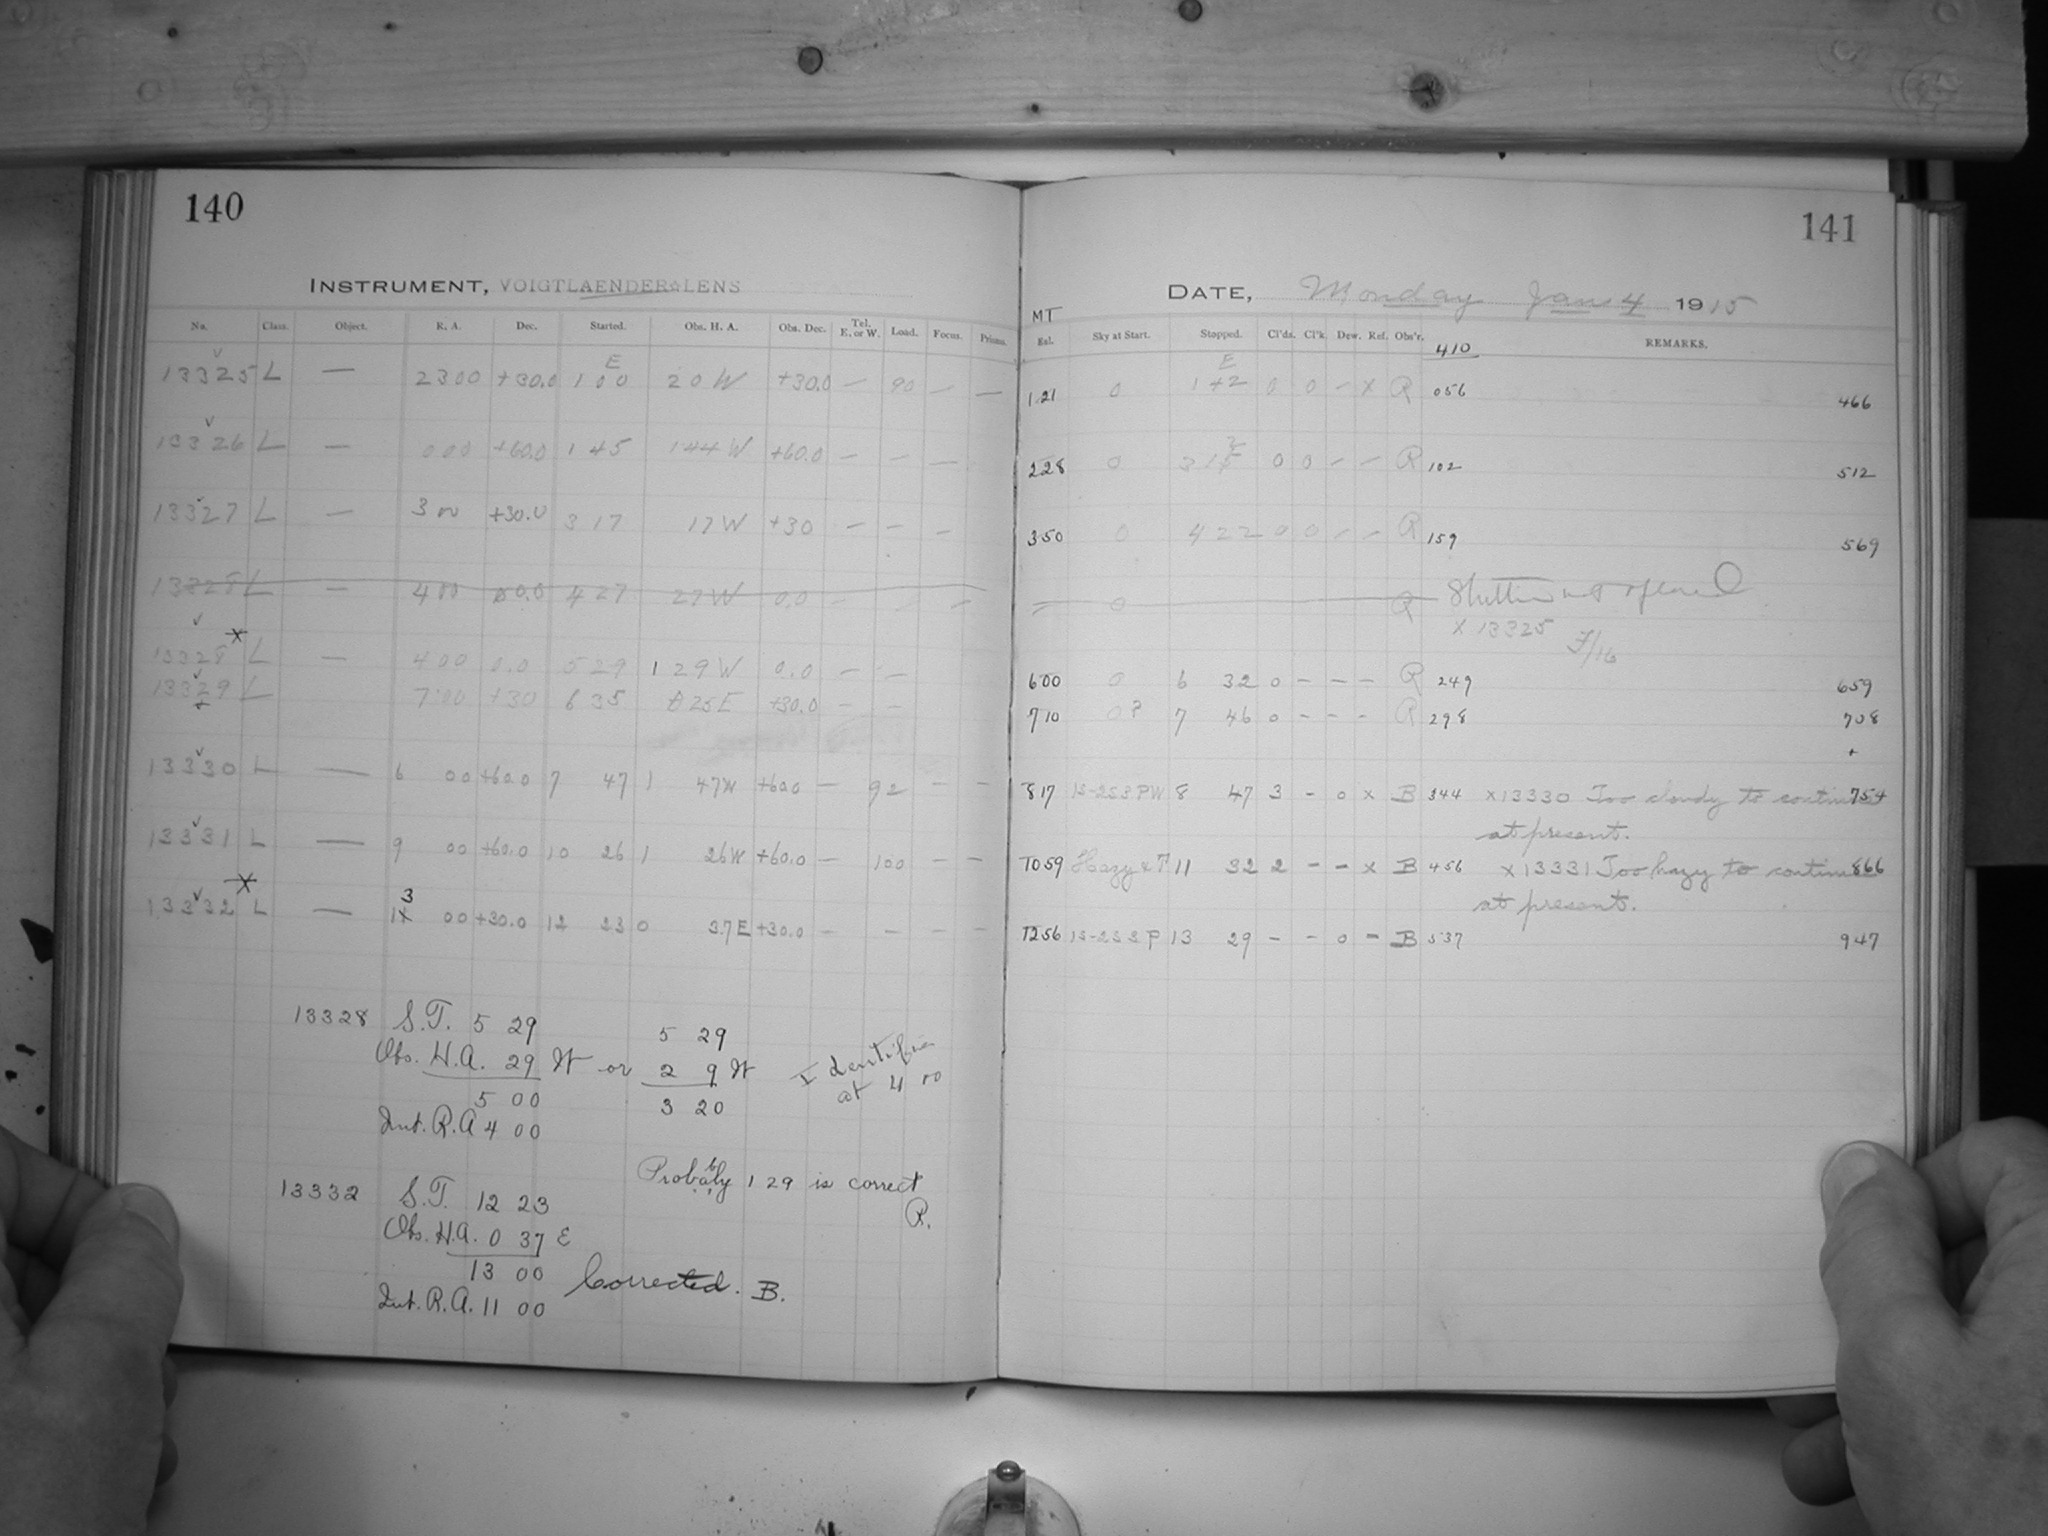 140
INSTRUMENT, VOIGTLAENDER LENS
No. Class. Object. R. A. Dec. Started. Obs. H. A. Obs. Dec. Tel. E. or W. Load. Focus. Prisms.
E
13325 L — 23 00 +30.0 1 00 20 W +30.0 — 90 — —
13326 L — 0 00 +60.0 1 45 1 44 W +60.0 — — —
13327 L — 3 00 +30.0 3 17 17 W +30 — — —
13328 L — 4 00 0.0 4 27 27 W 0.0 — — —
13328 * L — 4 00 0.0 5 29 1 29 W 0.0 — —
13329 L 7 00 +30 6 35 0 25 E +30.0 — —
13330 L — 6 00 +60.0 7 47 1 47 W +60.0 — 92 — —
13331 L — 9 00 +60.0 10 26 1 26 W +60.0 — 100 — —
3
13332 * L — 1 00 +30.0 12 23 0 37 E +30.0 — — — —
13328 S.T. 5 29 5 29
Obs. H.A. 29 W or 2 9 W
5 00 3 20
Int. R.A 4 00
at 4 00
Probably 1 29 is correct
R.
13332 S.T. 12 23
Obs. H.A. 0 37 E
13 00
Int. R.A. 11 00
Corrected. B.
141
DATE, Monday Jan 4 1915
MT
Exl. Sky at Start. Stopped. Cl'ds. Cl'k. Dew. Ref. Obs'r. 410 REMARKS.
E
1 21 0 1 42 0 0 — x R 056 466
2 28 0 3 1 0 0 — — R 102 512
3 50 0 4 22 0 0 — — R 159 569
0 R Shutter not opened
x 13325 F/16
6 00 0 6 32 0 – – – R 249 659
7 10 0? 7 46 0 – – – R 298 708
8 17 1s-2s3PW 8 47 3 – 0 x B 344 x 13330 Too cloudy to continue 754
at present.
10 59 Hazy & T 11 32 2 – – x B 456 x 13331 Too hazy to continue 866
at present.
12 56 1s-2s2P 13 29 – – 0 – B 537 947